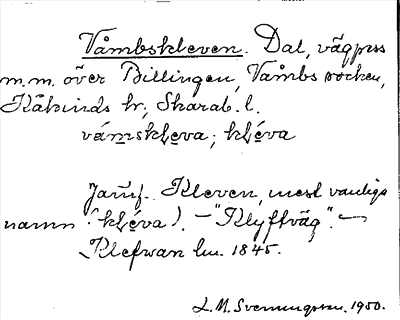 Våmbskleven. Dal, vägpass
m.m. över Billingen, Våmbs socken,
Kåkinds hr, Skarab. l.
våmskleva; kléva
Jämf. Kleven, mest vanliga
namn (kléva). – "Klyftväg". –
Klefwan lm. 1845.
L. M. Svenungsson, 1950.